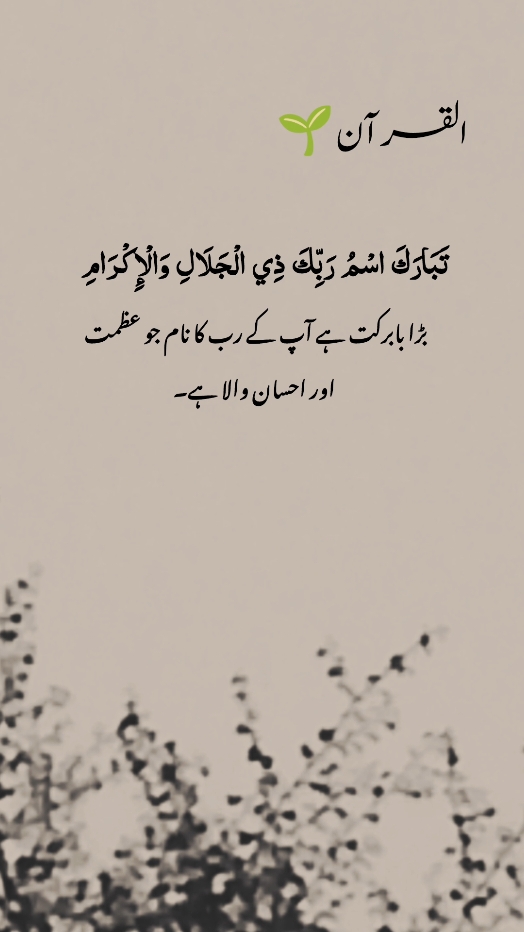 القرآن 🌱
تَبَارَكَ اسْمُ رَبِّكَ ذِي الْجَلَالِ وَالْإِكْرَامِ
بڑا بابرکت ہے آپ کے رب کا نام جو عظمت
اور احسان والا ہے۔